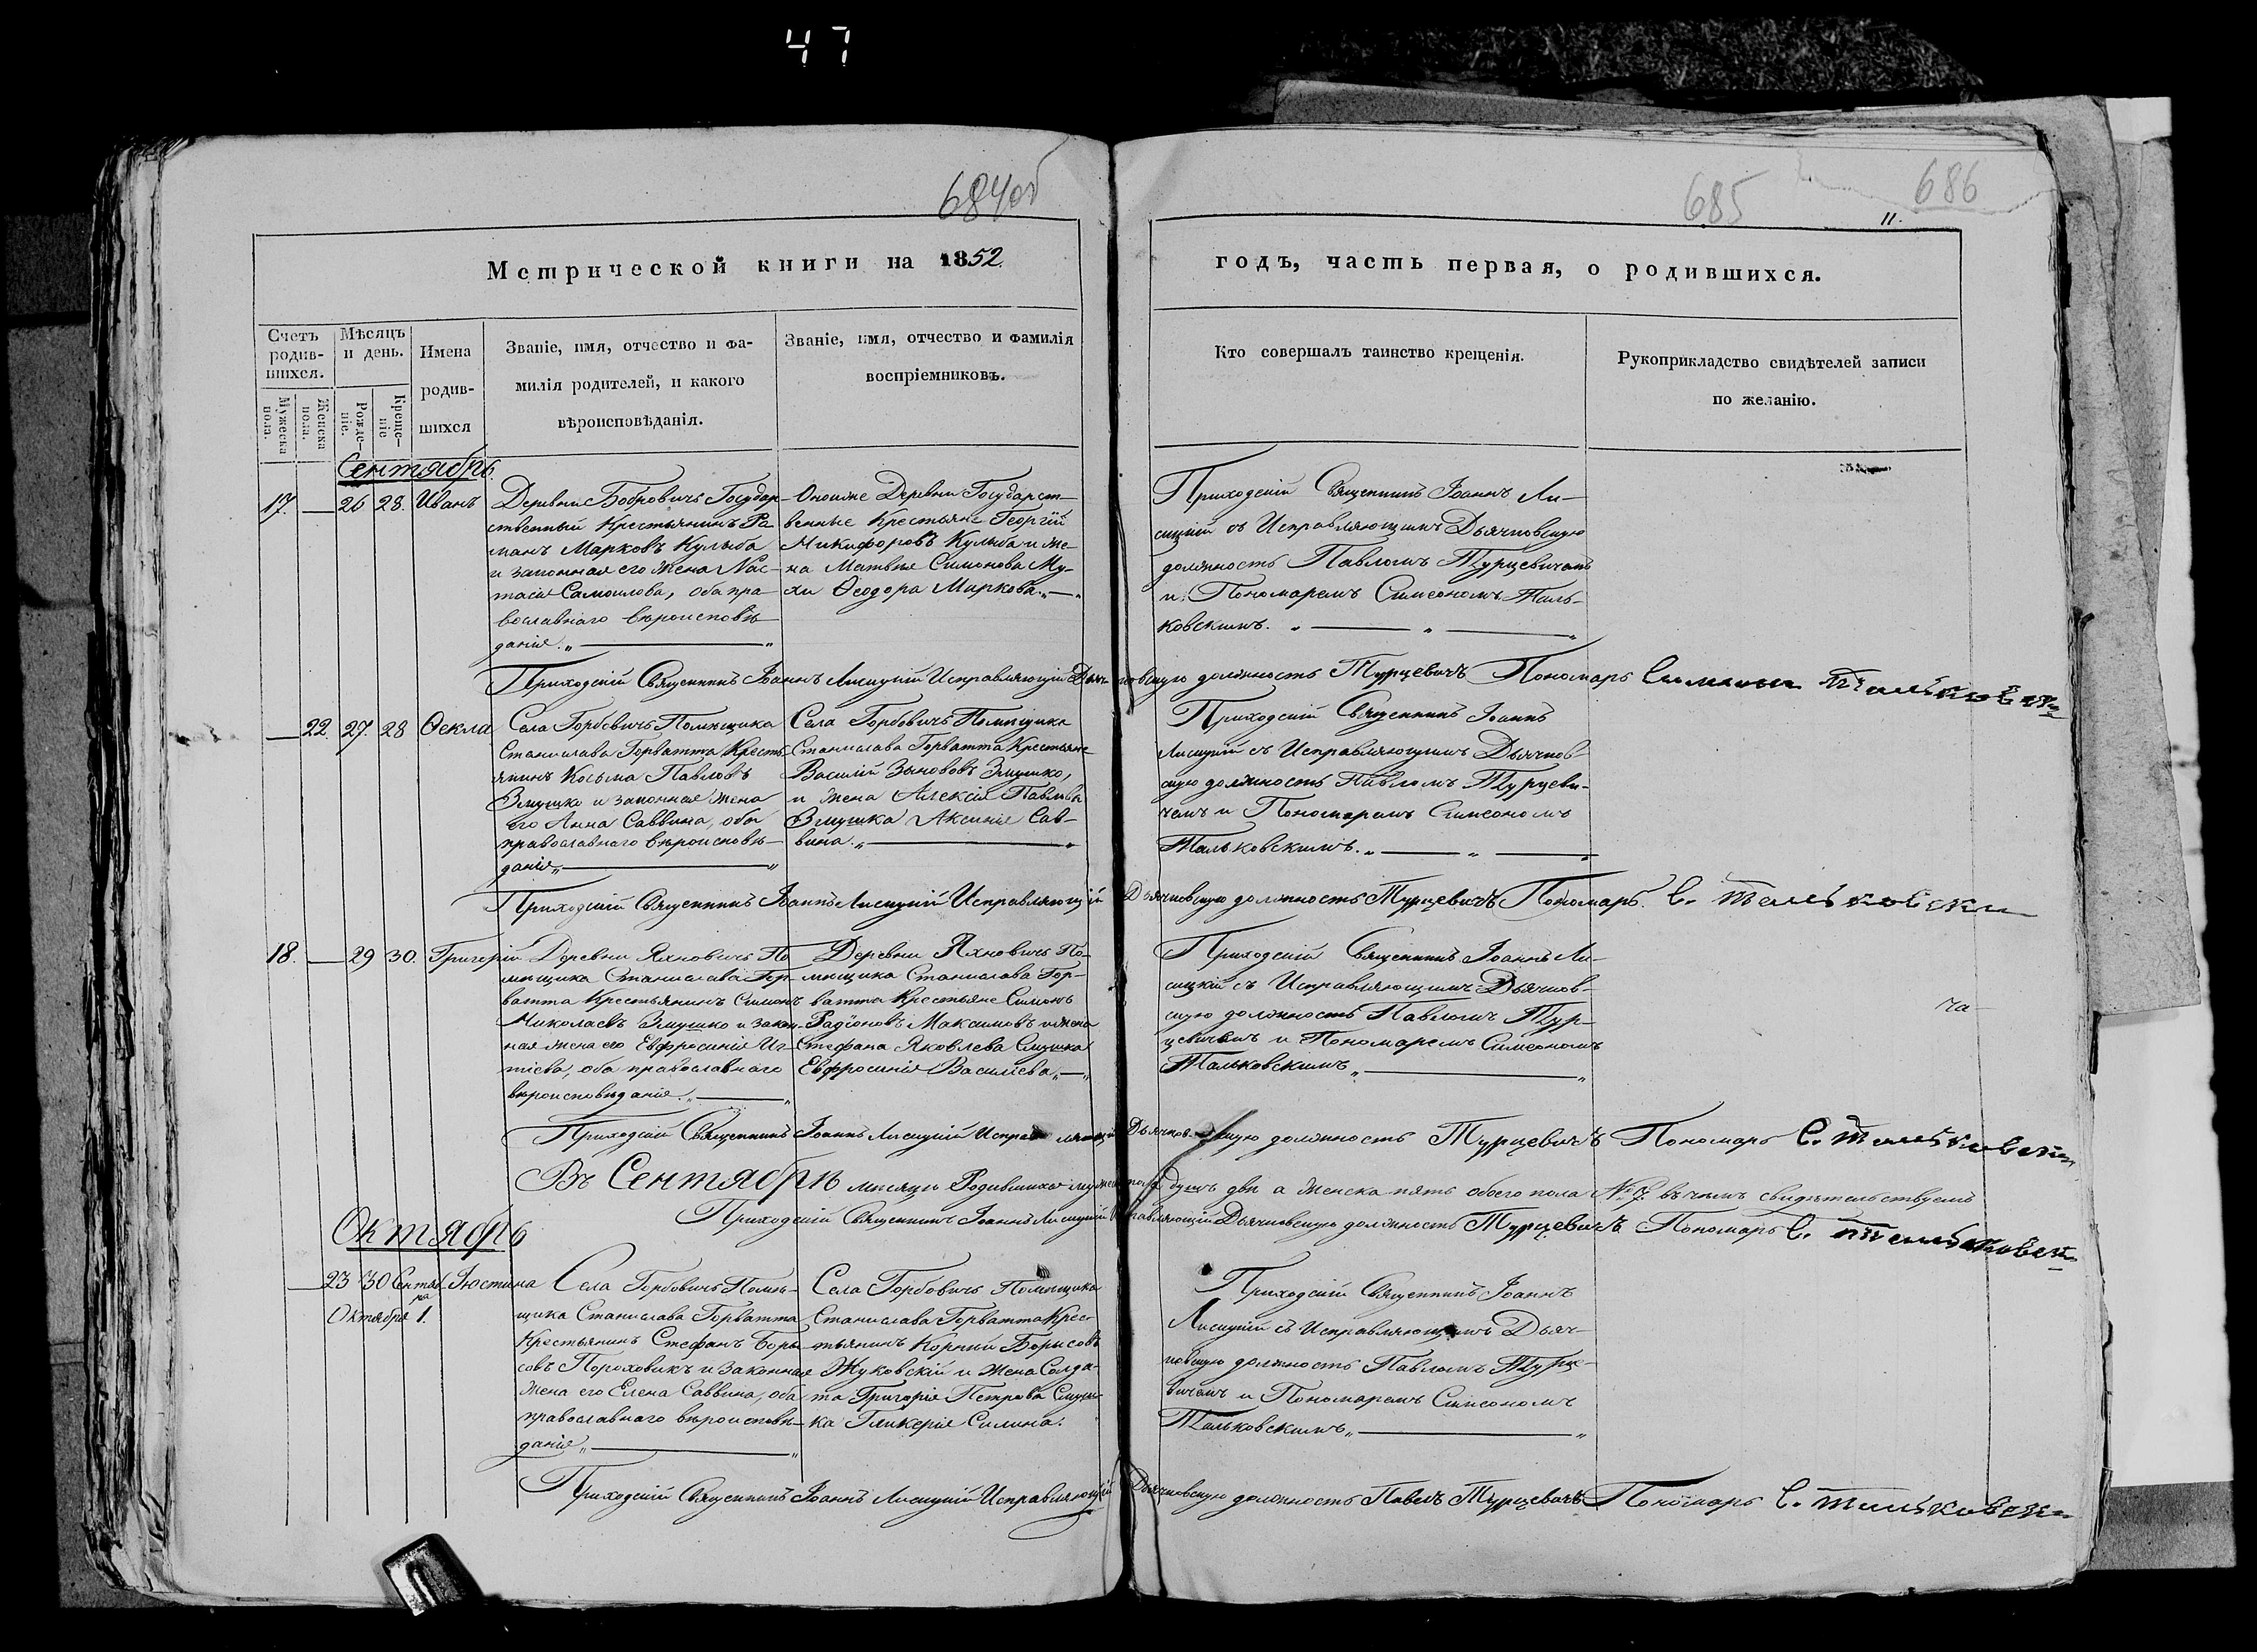 47
684об
685
686
11.
Метрической книги на 1852.
годъ, часть первая, о родившихся.
Счетъ родив-шихся.
Мужеска пола.
Женска пола.
Мѣсяцъ и день.
Рожде-ніе.
Креще-ніе
Имена
родив-
шихся
Званіе, имя, отчество и фа-
милія родителей, и какого
вѣроисповѣданія.
Званіе, имя, отчество и фамилія
воспріемниковъ.
Кто совершалъ таинство крещенія.
Рукоприкладство свидѣтелей записи
по желанію.
Сентябрь.
17. — 26 28. Иванъ
Деревни Бобровичъ Государ-
ственный Крестьянинъ Ра
манъ Марковъ Кулыба
и законная его жена Нас-
тасія Самоилова, оба пра-
вославнаго вѣроисповѣ-
данія.
Оноиже Деревни Государст-
венные Крестьяне Георгій
Никифоровъ Кулыба и же-
на Матвѣя Симонова Му-
хи Ѳеодора Маркова.
Приходскій Священникъ Іоаннъ Ли-
сицкій съ Исправляющимъ Дьячковскую
должность Павломъ Турцевичемъ
и Пономаремъ Симеономъ Таль-
ковскимъ.
Приходскій Священникъ Іоаннъ Лисицкій Исправляющій Дьячковскую должность Турцевичъ Пономарь Симеонъ Тальковски
— 22. 27. 28 Ѳекла
Села Горбовичъ Помѣщика
Станислава Горватта Кресть-
янинъ Косьма Павловъ
Змушко и законная жена
его Анна Саввина, оба
православнаго вѣроисповѣ-
данія
Села Горбовичъ Помѣщика
Станислава Горватта Крестьяне
Василій Зынововъ Змушко,
и жена Алексія Павлова
Змушка Аксинія Сав-
вина.
Приходскій Священникъ Іоаннъ
Лисицкій съ Исправляющимъ Дьячков-
скую должность Павломъ Турцеви-
чемъ и Пономаремъ Симеономъ
Тальковскимъ.
Приходскій Священникъ Іоаннъ Лисицкій Исправляющій Дьячковскую должность Турцевичъ Пономарь С. Тальковски
18. — 29 30. Григорій
Деревни Яхновичъ По
мѣщика Станислава Гор-
ватта Крестьянинъ Симонъ
Николаевъ Змушко и закон-
ная жена его Евфросинія Иг-
тіева, оба православнаго
вѣроисповѣданія.
Деревни Яхновичъ По-
мѣщика Станислава Гор-
ватта Крестьяне Симонъ
Радіоновъ Максимовъ и жена
Стефана Яковлева Смушка
Евфросинія Василіева
Приходскій Священникъ Іоаннъ Ли-
сицкій съ Исправляющимъ Дьячков-
скую должность Павломъ Тур-
цевичемъ и Пономаремъ Симеономъ
Тальковскимъ
Приходскій Священникъ Іоаннъ Лисицкій Исправляющій Дьячковскую должность Турцевичъ Пономарь С. Тальковски
Въ Сентябрѣ мѣсяцѣ Родившихся мужеска пола душъ двѣ а женска пять обоего пола № 7. въ чемъ свидѣтельствуемъ
Приходскій Священникъ Іоаннъ Лисицкій Исправляющій Дьячковскую должность Турцевичъ Пономарь С. Тальковски
Октябрь
— 23 30 Сентября Іюстина
Октября 1.
Села Горбовичъ Помѣ-
щика Станислава Горватта
Крестьянинъ Стефанъ Бори-
совъ Пороховикъ и законная
жена его Елена Саввина, оба
православнаго вѣроисповѣ-
данія
Села Горбовичъ Помѣщика
Станислава Горватта Крес-
тьянинъ Корній Борисовъ
Жуковскій и жена Солда-
та Григорія Петрова Смуш-
ка Гликерія Силина.
Приходскій Священникъ Іоаннъ
Лисицкій съ Исправляющимъ Дьяч-
ковскую должность Павломъ Турце-
вичемъ и Пономаремъ Симеономъ
Тальковскимъ
Приходскій Священникъ Іоаннъ Лисицкій Исправляющій Дьячковскую должность Павелъ Турцевичъ Пономарь С. Тальковски